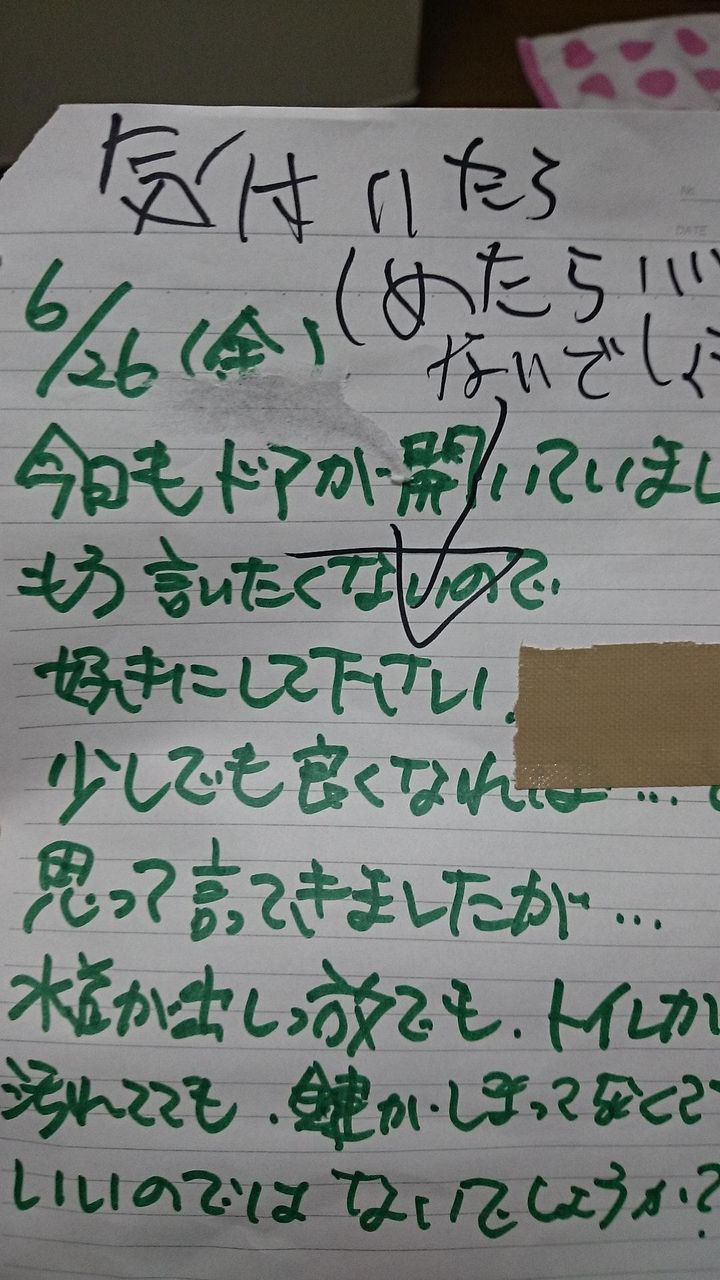 気付いたら
しめたらいい
No.
DATE
6/26（金）
ないでしょ
今日もドアが開いていまし
もう言いたくないので
好きにして下さい.
少しでも良くなれば…
思って言ってきましたが…
水道が出しっ放でも.トイレが
汚れてても.鍵がしまって無くて
いいのではないでしょうか?